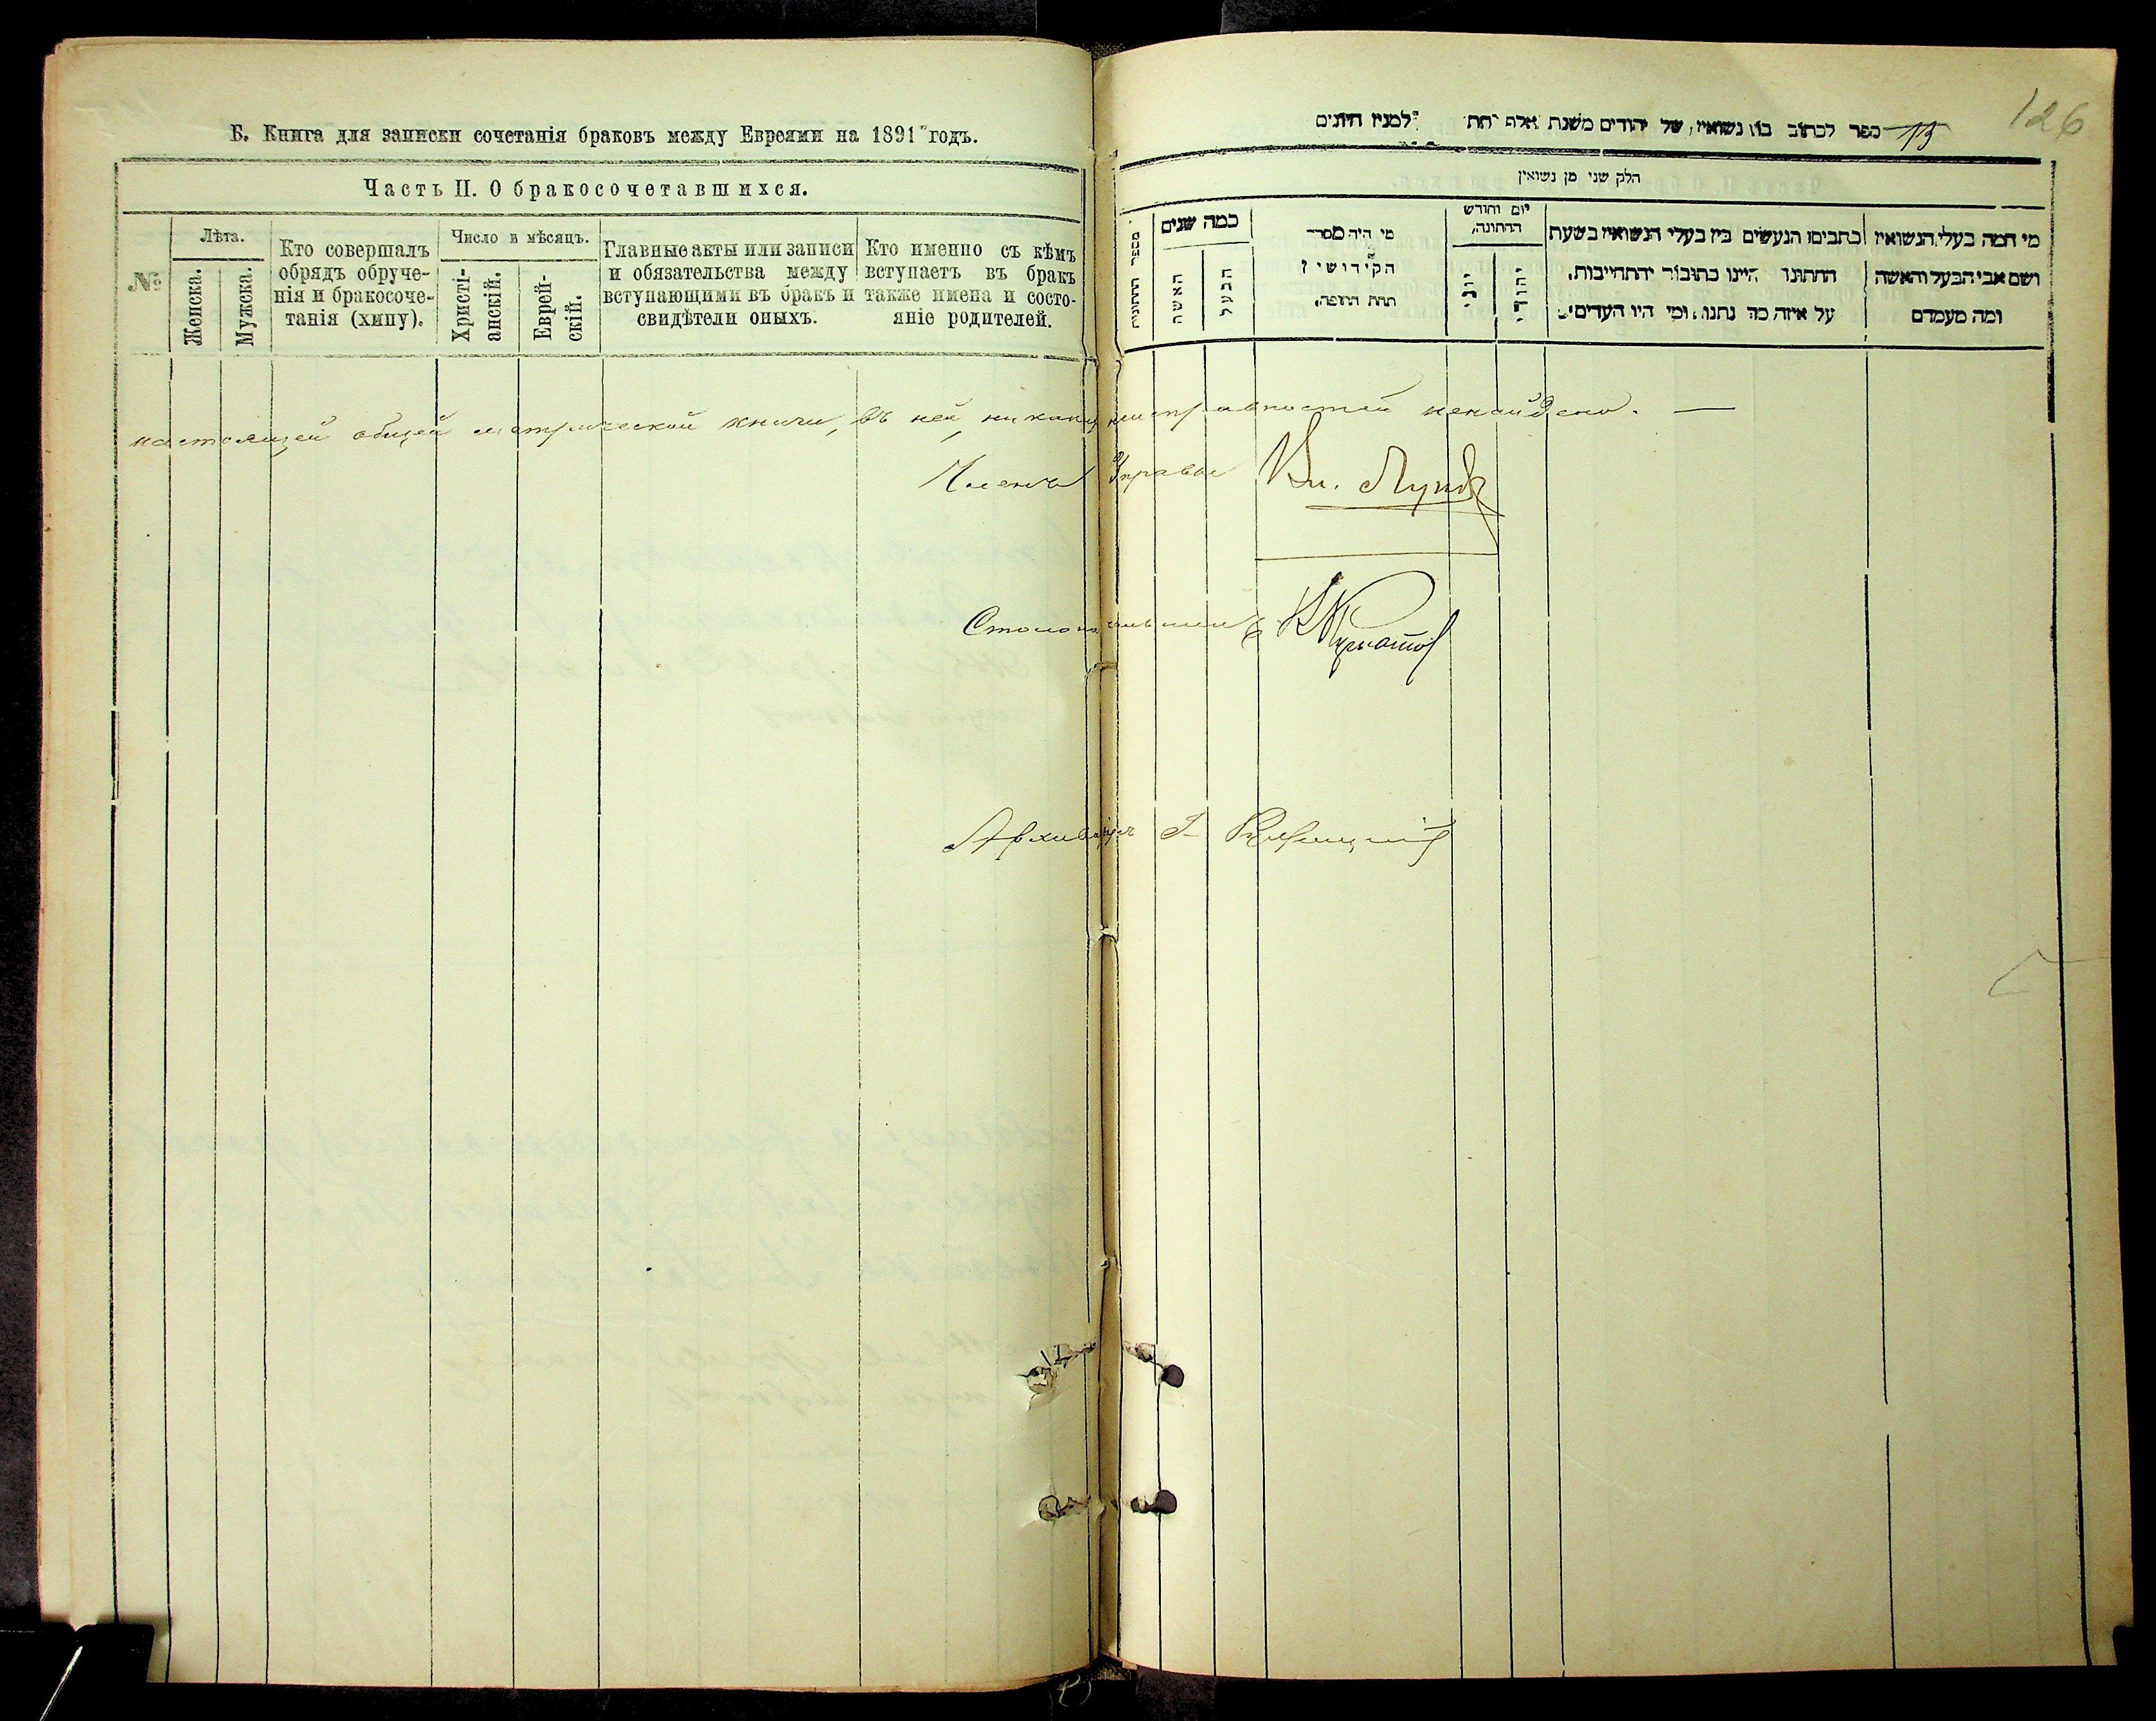 Б. Книга для записки сочетанія браковъ между Евреями на 1891 годъ.
Часть II. О бракосочетавшихся.
№
Лѣта.
Женска.
Мужска.
Кто совершалъ
обрядъ обруче-
нія и бракосоче-
танія (хипу).
Число и мѣсяцъ.
Христі-
анскій.
Еврей-
скій.
Главные акты или записи
и обязательства между
вступающими въ бракъ и
свидѣтели оныхъ.
Кто именно съ кѣмъ
вступаетъ въ бракъ
также имена и состо-
яніе родителей.
126
ספר לכתוב בו נשואין של יהודים משנת אלף תת למנין היונים
חלק שני מן נשואין
מספר החתונות
כמה שנים
האשה
הבעל
מי היה מסדר
הקידושין
תחת החופה,
יום וחודש
החתונה,
יוני
יהודי
כתבים הנעשים בין בעלי הנשואין בשעת
החתונה היינו כתובה והתחייבות,
על איזה סך נתנו, ומי היו העדים,
מי המה בעלי הנשואין
ושם אבי הבעל והאשה
ומה מעמדם
настоящей общей метрической книги, въ ней никакихъ неисправностей ненайдено. —
Членъ Управы Вл.
Столоначальникъ
Архиваріусъ